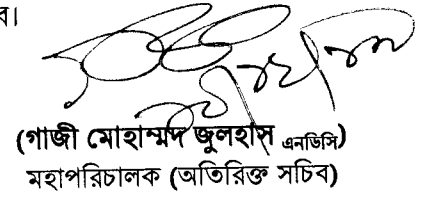 ব।
(গাজী মোহাম্মদ জুলহাস এনডিসি)
মহাপরিচালক (অতিরিক্ত সচিব)